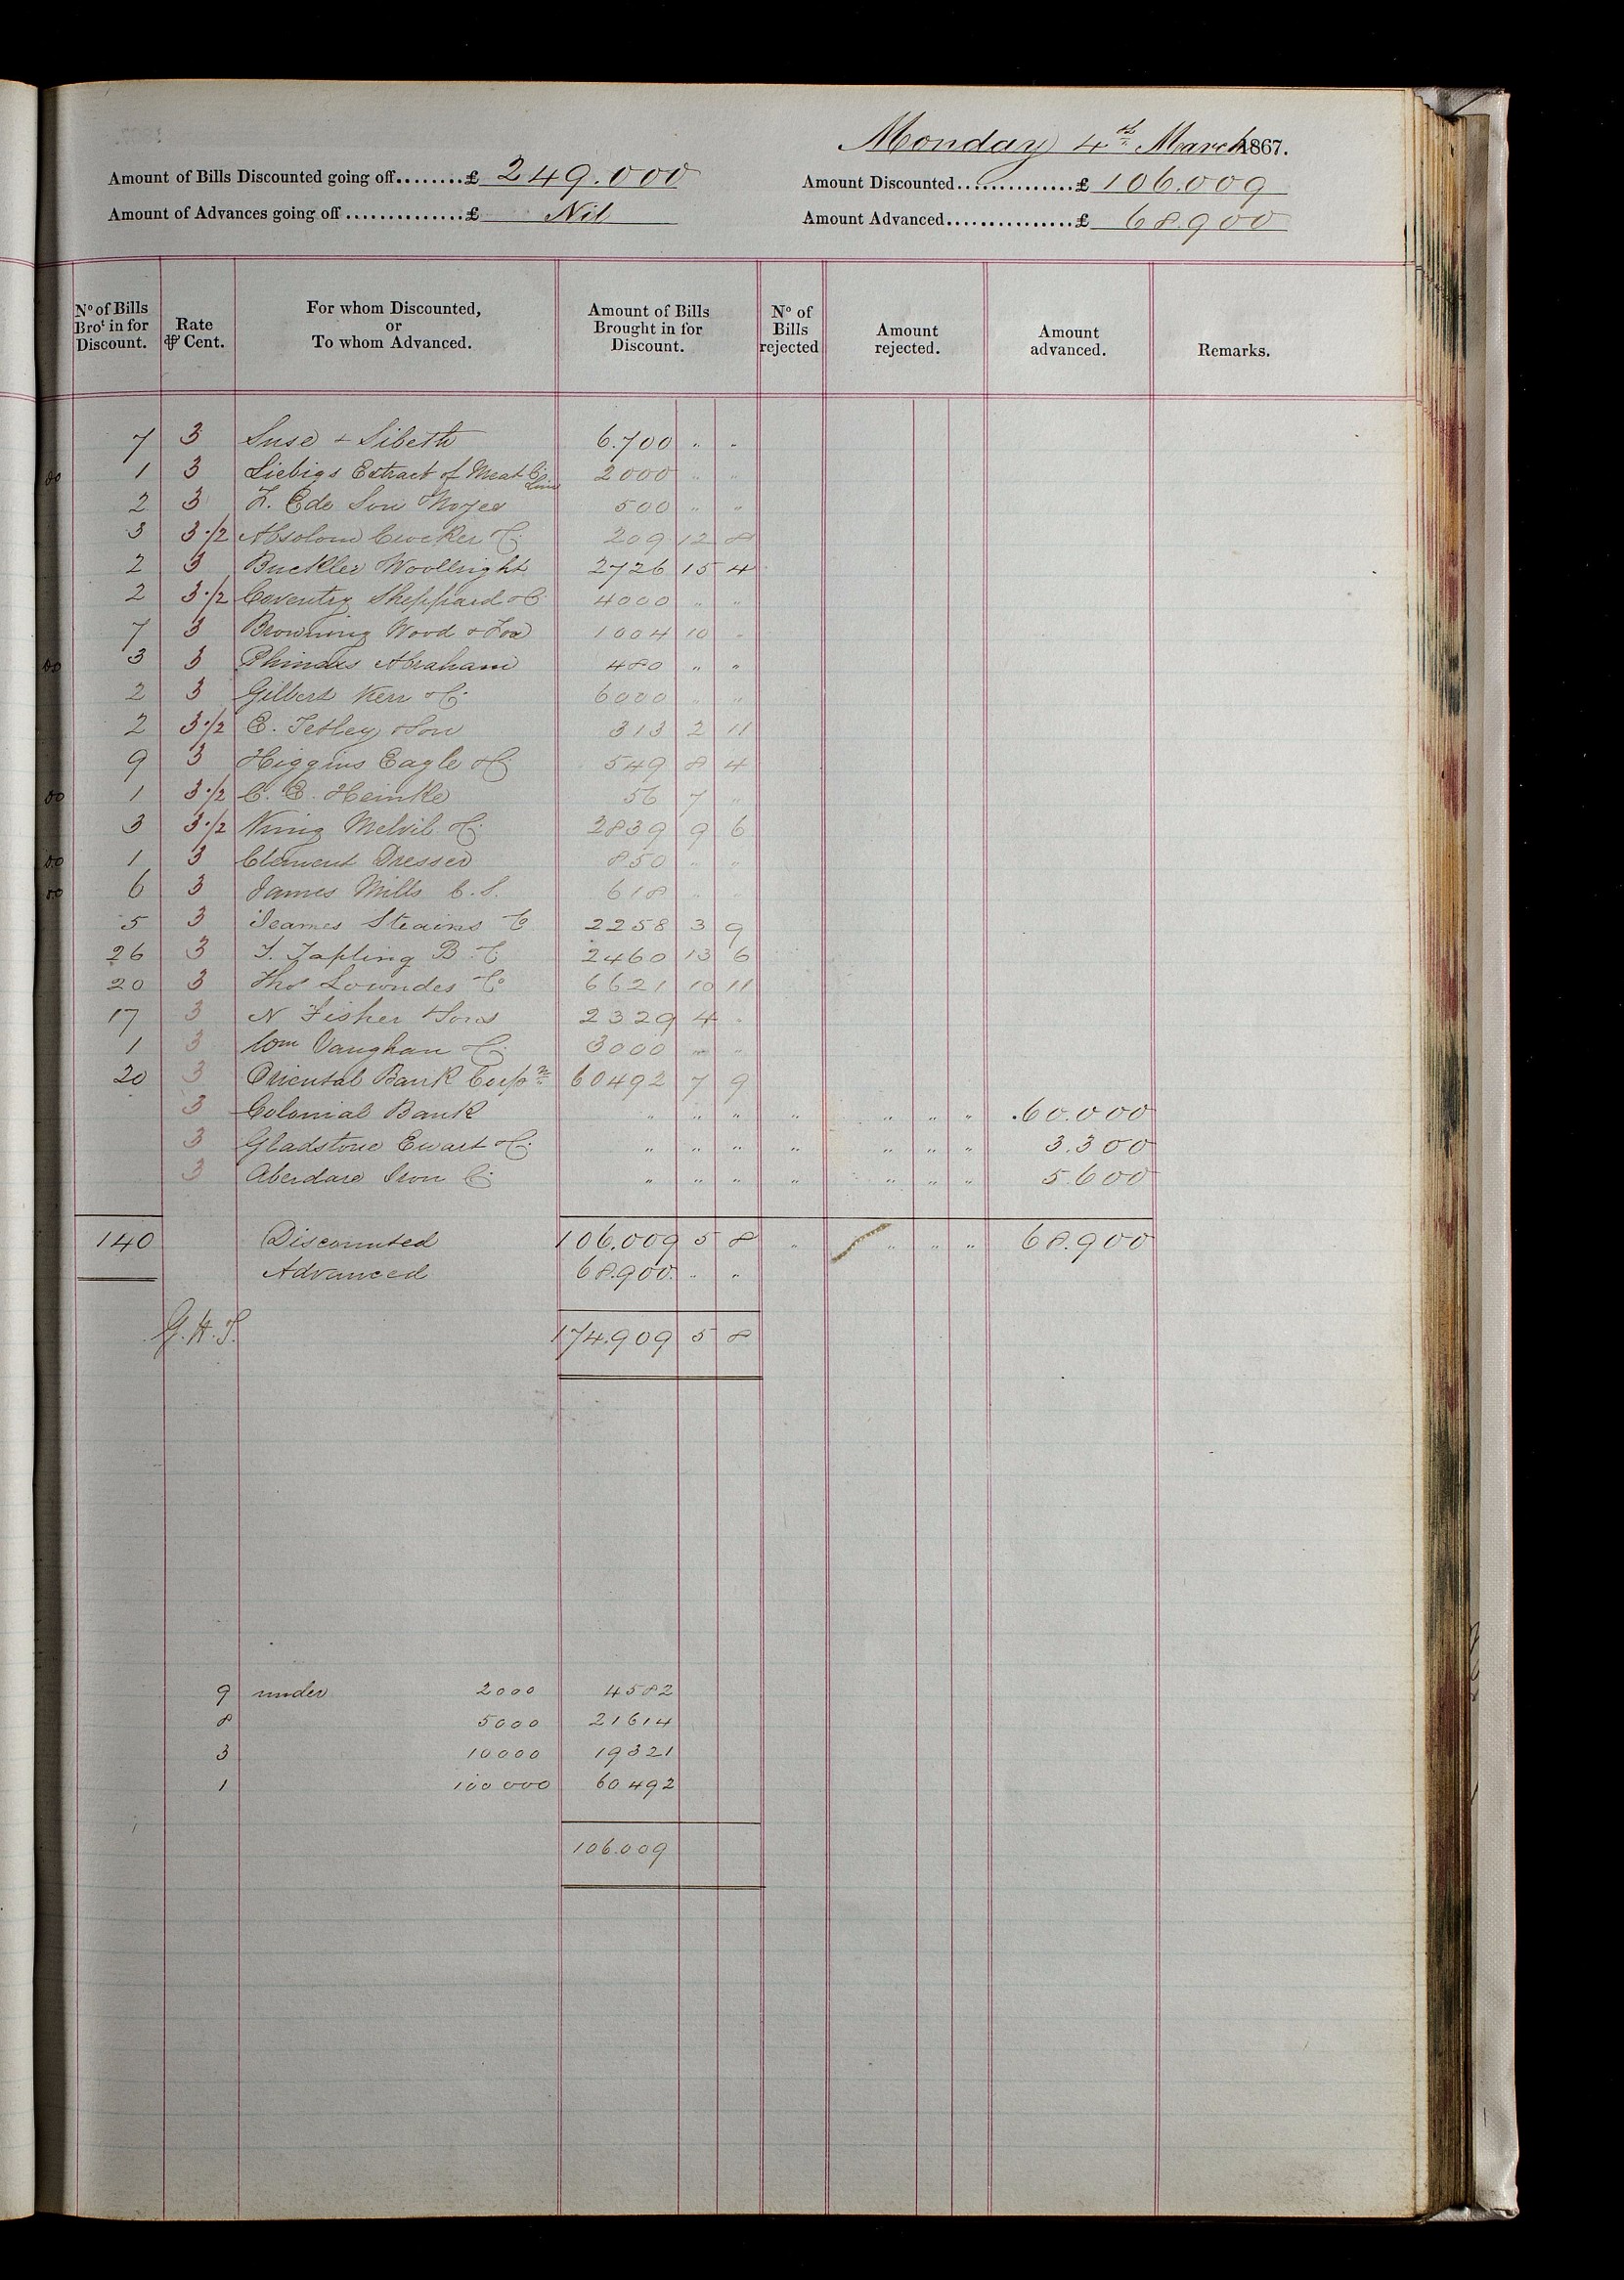 Monday 4th March 1867.
Amount of Bills Discounted going off........£ 249.000 Amount Discounted..............£ 106.009
Amount of Advances going off..............£ Nil Amount Advanced................£ 68.900
No of Bills Brot in for Discount. Rate ⅌ Cent. For whom Discounted, or To whom Advanced. Amount of Bills Brought in for Discount. No of Bills rejected Amount rejected. Amount advanced. Remarks.
7 3 Suse & Sibeth 6.700 " "
1 3 Liebigs Extract of Meat Co Lim 2000 " "
2 3 Ede Son Noyes 500 " "
3 3·/2 Absolom Crocker Co 209 12 8
2 3 Buckler Woollright 2726 15 4
2 3·/2 Coventry Sheppard & Co 4000 " "
7 3 Browning Wood & Fox 1004 10 "
3 3 Phineas Abraham 480 " "
2 3 Gilbert Kerr & Co 6000 " "
2 3·/2 E. Tetley & Son 313 2 11
9 3 Higgins Eagle & Co 549 8 4
1 3·/2 C. E. Heinke 56 7 "
3 3·/2 King Melvil Co 2839 9 6
1 3 Clement Dresser 850 " "
6 3 James Mills C. S. 618 " "
5 3 Steains Co 2258 3 9
26 3 T. Tapling B. Co 2460 13 6
20 3 Thos Lowndes Co 6621 10 11
17 3 N Fisher & Sons 2329 4 "
1 3 Wm Vaughan & Co 3000 " "
20 3 Oriental Bank Corpn 60492 7 9
3 Colonial Bank " " " " " " " 60.000
3 Gladstone Ewart & Co " " " " " " " 3.300
3 Aberdare Iron Co " " " " " " " 5.600
140 Discounted 106.009 5 8 " " " " 68.900
Advanced 68.900 " "
G. H. T. 174.909 5 8
9 under 2000 4582
8 5000 21614
3 10000 19321
1 100 000 60492
106.009